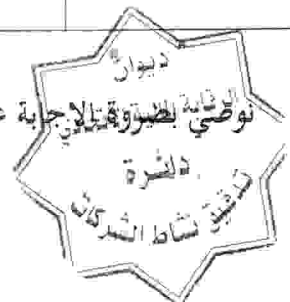 ديوان
الرقابة المالية
نوصي بضرورة الاجابة
دائرة
تدقيق نشاط الشركات